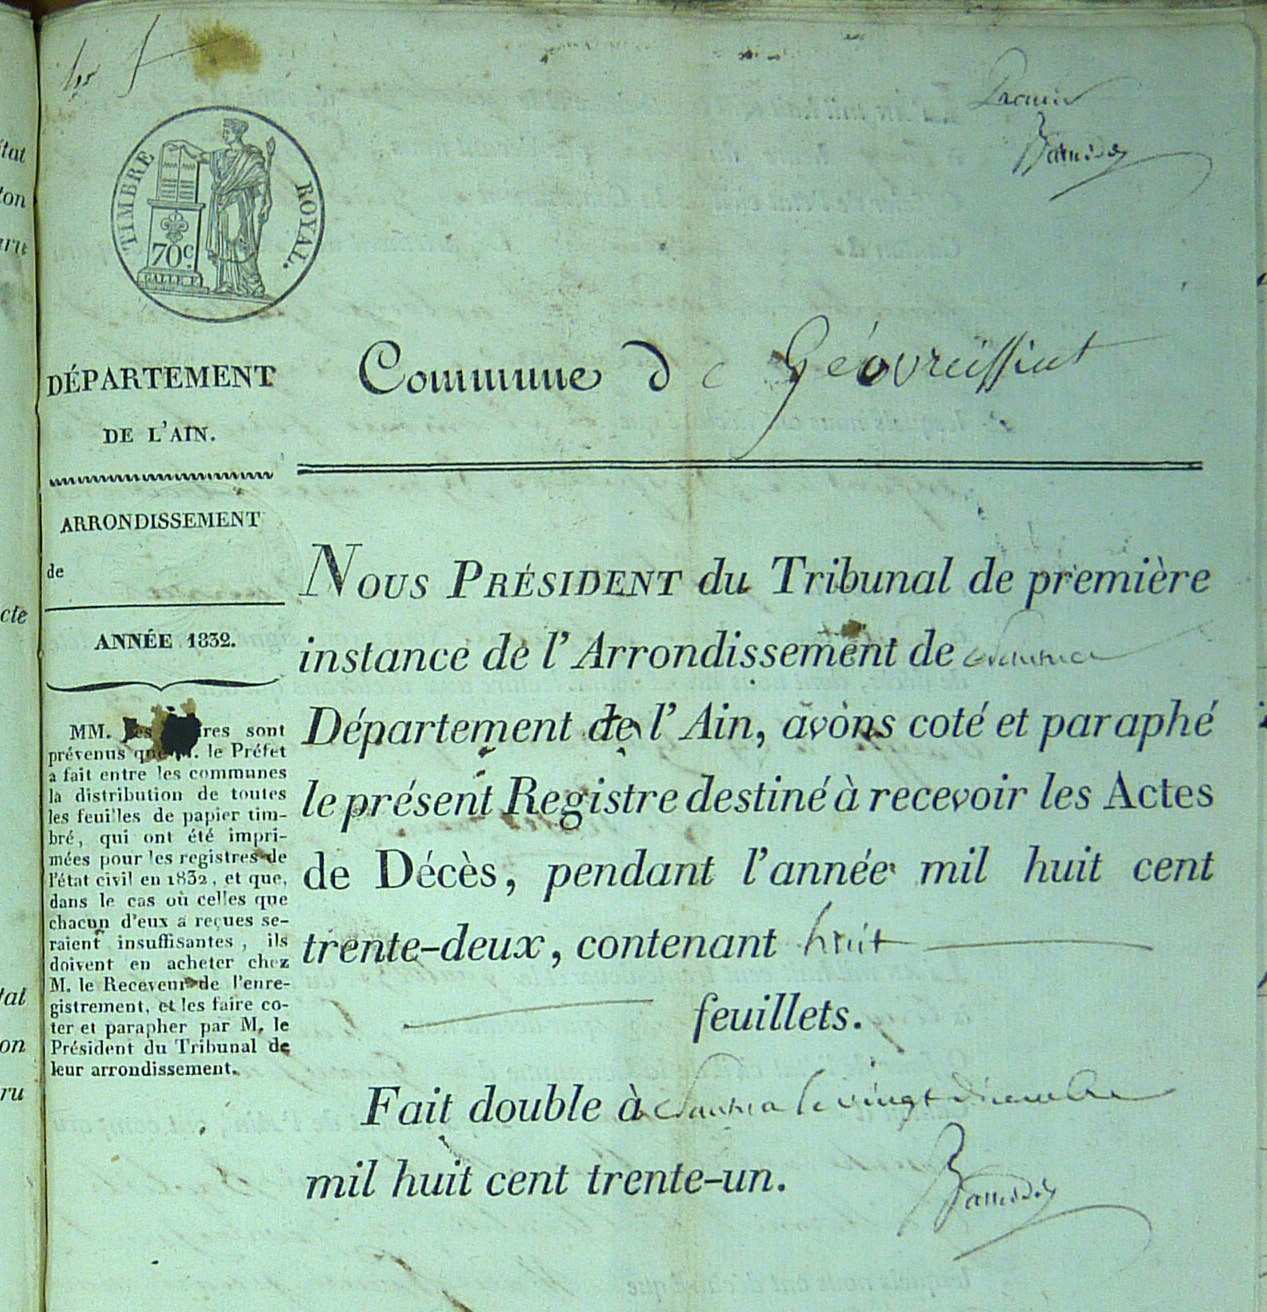 TIMBRE ROYAL.
70c.
DÉPARTEMENT
DE L'AIN.
ARRONDISSEMENT
de
ANNÉE 1832.
MM. les ires sont
prévenus que M. le Préfet
a fait entre les communes
la distribution de toutes
les feuilles de papier tim-
bré, qui ont été impri-
mées pour les registres de
l'état civil en 1832, et que,
dans le cas où celles que
chacun d'eux a reçues se-
raient insuffisantes, ils
doivent en acheter chez
M. le Receveur de l'enre-
gistrement, et les faire co-
ter et parapher par M. le
Président du Tribunal de
leur arrondissement.
Commune de Géovreissiat
NOUS PRÉSIDENT du Tribunal de première
instance de l'Arrondissement de Nantua
Département de l'Ain, avons coté et paraphé
le présent Registre destiné à recevoir les Actes
de Décès, pendant l'année mil huit cent
trente-deux, contenant huit
feuillets.
Fait double à Nantua le vingt décembre
mil huit cent trente-un.